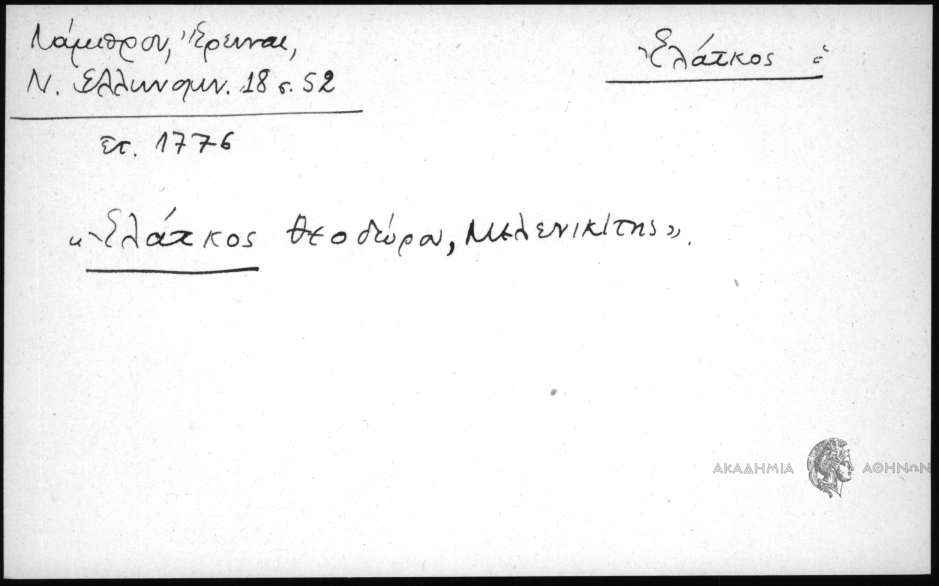 Λάμπρου, Ἔρευναι,
Ν. Ἑλληνομν. 18 σ. 52
Σλάτκος ὁ
ἔτ. 1776
« Σλάτκος Θεοδώρου, Μελενικίτης».
ΑΚΑΔΗΜΙΑ ΑΘΗΝΩΝ